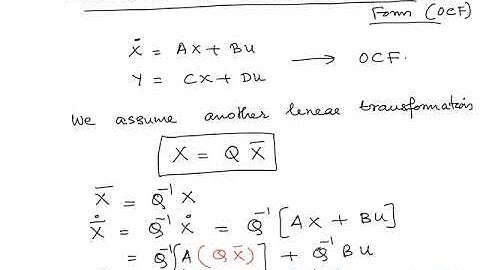 Form (OCF)
Ẋ = AX + BU ⟶ OCF.
Y = CX + DU
We assume another lenear transformation
X = Q X̅
X̅ = Q⁻¹ X
Ẋ̅ = Q⁻¹ Ẋ = Q⁻¹ [AX + BU]
= Q⁻¹[A(Q X̅)] + Q⁻¹ BU